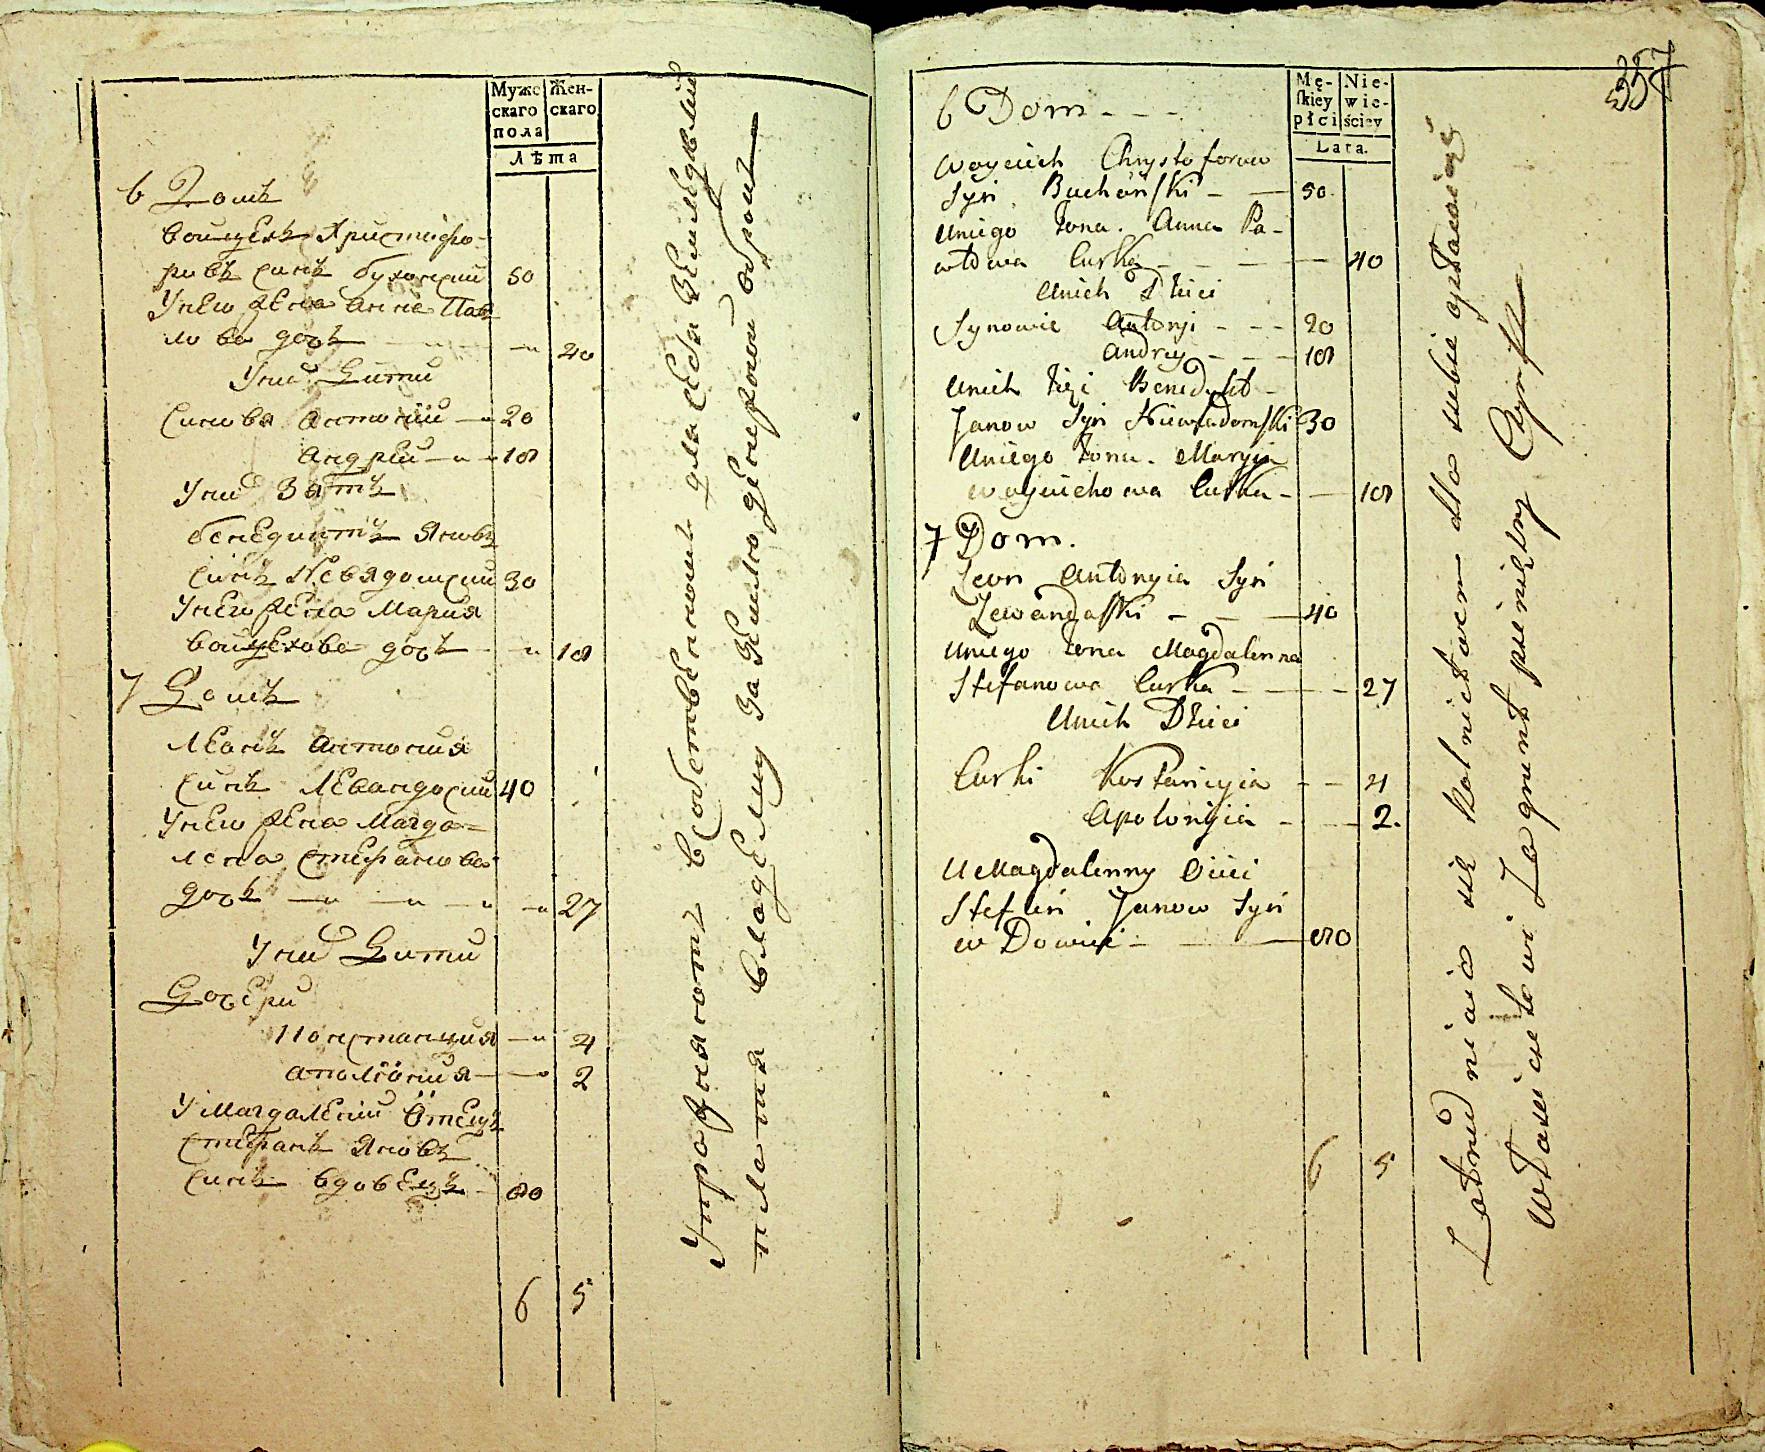 Муже
скаго
пола
Жен-
скаго
Лѣта
6 Домъ
Войцехъ Христофо-
ровъ синъ Буханский 50
Унего жена Анна Пав
лова дочъ 40
Уних Дѣти
Синовя Антоний 20
Андрей 18
Уних Затъ
Бенедиктъ Яновъ
синъ Невядомский 30
Унего жена Мария
Войцехова дочъ 18
7 Домъ
Леонъ Антония
синъ Левандоский 40
Унего жена Магда-
лена Стефанова
дочъ 27
Уних Дѣти
Дочери
Констанция 4
Аполония 2
У Магдалени Отецъ
Стефанъ Яновъ
синъ вдовецъ 80
6 5
Упражняютъ всобственном для себя земледелии
платя владелцу за землю денежной оброк
357
Mę-
skiey
płci
Nie-
wie-
ściey
Lata.
6 Dom
Woyciech Chrystoforow
Syn Buchański 50
Uniego Żona Anna Pa-
włowa Curka 40
Unich Dzieci
Synowie Antonji 20
Andrzy 18
Unich Zięć Benedykt
Janow Syn Niewiadomski 30
Uniego Żona Maryia
Woyciechowa Curka 18
7 Dom.
Leon Antonyia Syn
Lewandaski 40
Uniego Żona Magdalenna
Stefanowa Curka 27
Unich Dzieci
Curki Kostancyia 4
Apolonyia 2.
U Magdalenny Ociec
Stefan Janow Syn
w Dowiec 80
6 5
Zatrudniaio się Rolnictwem dla siebie opłacaiąc
właścicielowi Za grunt pieniężny Czynsz